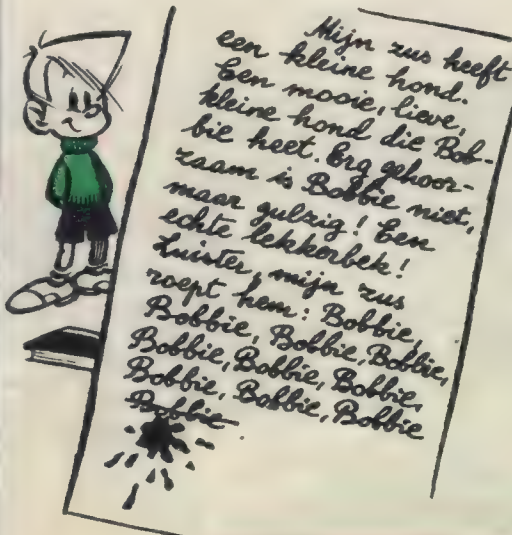 Mijn zus heeft
een kleine hond.
Een mooie, lieve,
kleine hond die Bob-
bie heet. Erg gehoor-
zaam is Bobbie niet,
maar gulzig! Een
echte lekkerbek!
Luister, mijn zus
roept hem: Bobbie,
Bobbie, Bobbie, Bobbie,
Bobbie, Bobbie, Bobbie,
Bobbie, Bobbie, Bobbie
Bobbie